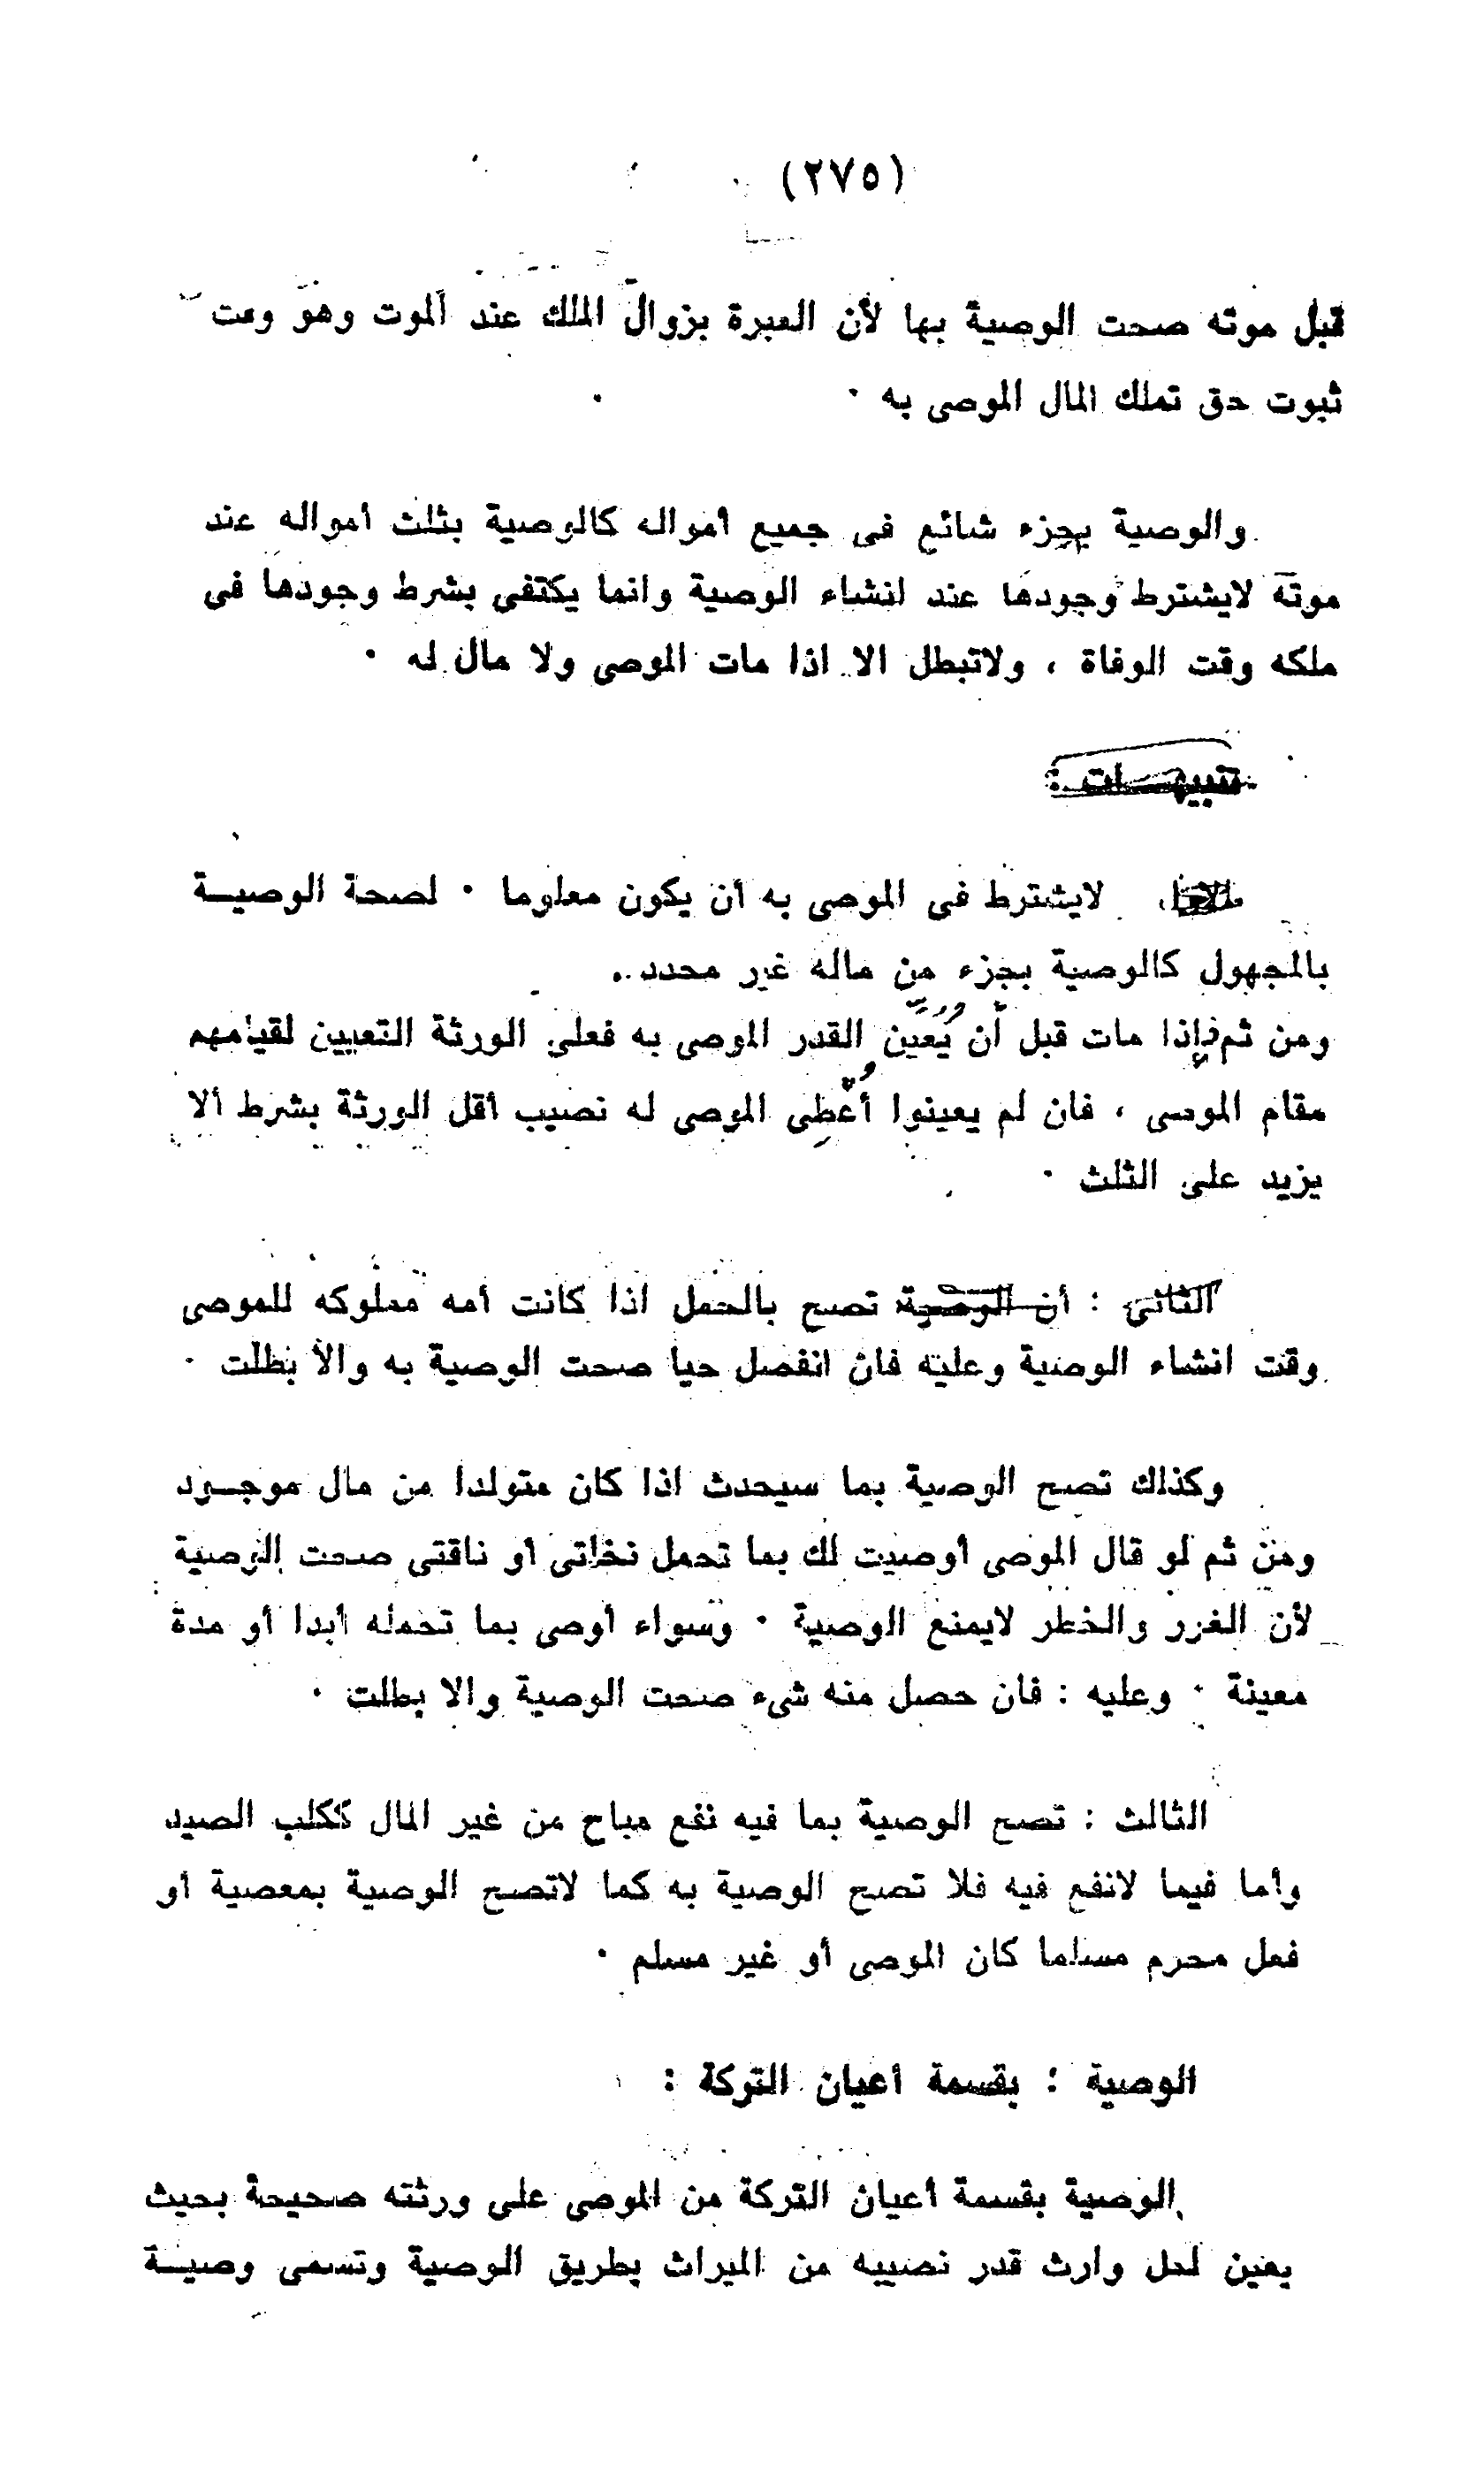 (٢٧٥)
قبل موته صحت الوصية بها لأن العبرة بزوال الملك عند الموت وهو وقت
ثبوت حق تملك المال الموصى به ·
والوصية بجزء شائع فى جميع أمواله كالوصية بثلث أمواله عند
موته لايشترط وجودها عند انشاء الوصية وانما يكتفى بشرط وجودها فى
ملكه وقت الوفاة ، ولاتبطل الا اذا مات الموصى ولا مال له ·
تنبيهــات :
لايشترط فى الموصى به أن يكون معلوما · لصحة الوصيــة
بالمجهول كالوصية بجزء من ماله غير محدد ..
ومن ثم فإذا مات قبل أن يُعين القدر الموصى به فعلى الورثة التعيين لقيامهم
مقام الموصى ، فان لم يعينوا أُعْطِى الموصى له نصيب أقل الورثة بشرط ألا
يزيد على الثلث ·
الثانى : أن الوصية تصح بالحمل اذا كانت أمه مملوكه للموصى
وقت انشاء الوصية وعليه فان انفصل حيا صحت الوصية به والا بطلت ·
وكذلك تصح الوصية بما سيحدث اذا كان متولدا من مال موجــود
ومن ثم لو قال الموصى أوصيت لك بما تحمل نخلتى أو ناقتى صحت الوصية
لأن الغرر والخطر لايمنع الوصية · وسواء أوصى بما تحمله أبدا أو مدة
معينة · وعليه : فان حصل منه شىء صحت الوصية والا بطلت ·
الثالث : تصح الوصية بما فيه نفع مباح من غير المال ككلب الصيد
وأما فيما لانفع فيه فلا تصح الوصية به كما لاتصح الوصية بمعصية أو
فعل محرم مسلما كان الموصى أو غير مسلم ·
الوصية : بقسمة أعيان التركة :
الوصية بقسمة أعيان التركة من الموصى على ورثته صحيحة بحيث
يعين لكل وارث قدر نصيبه من الميراث بطريق الوصية وتسمى وصيــة